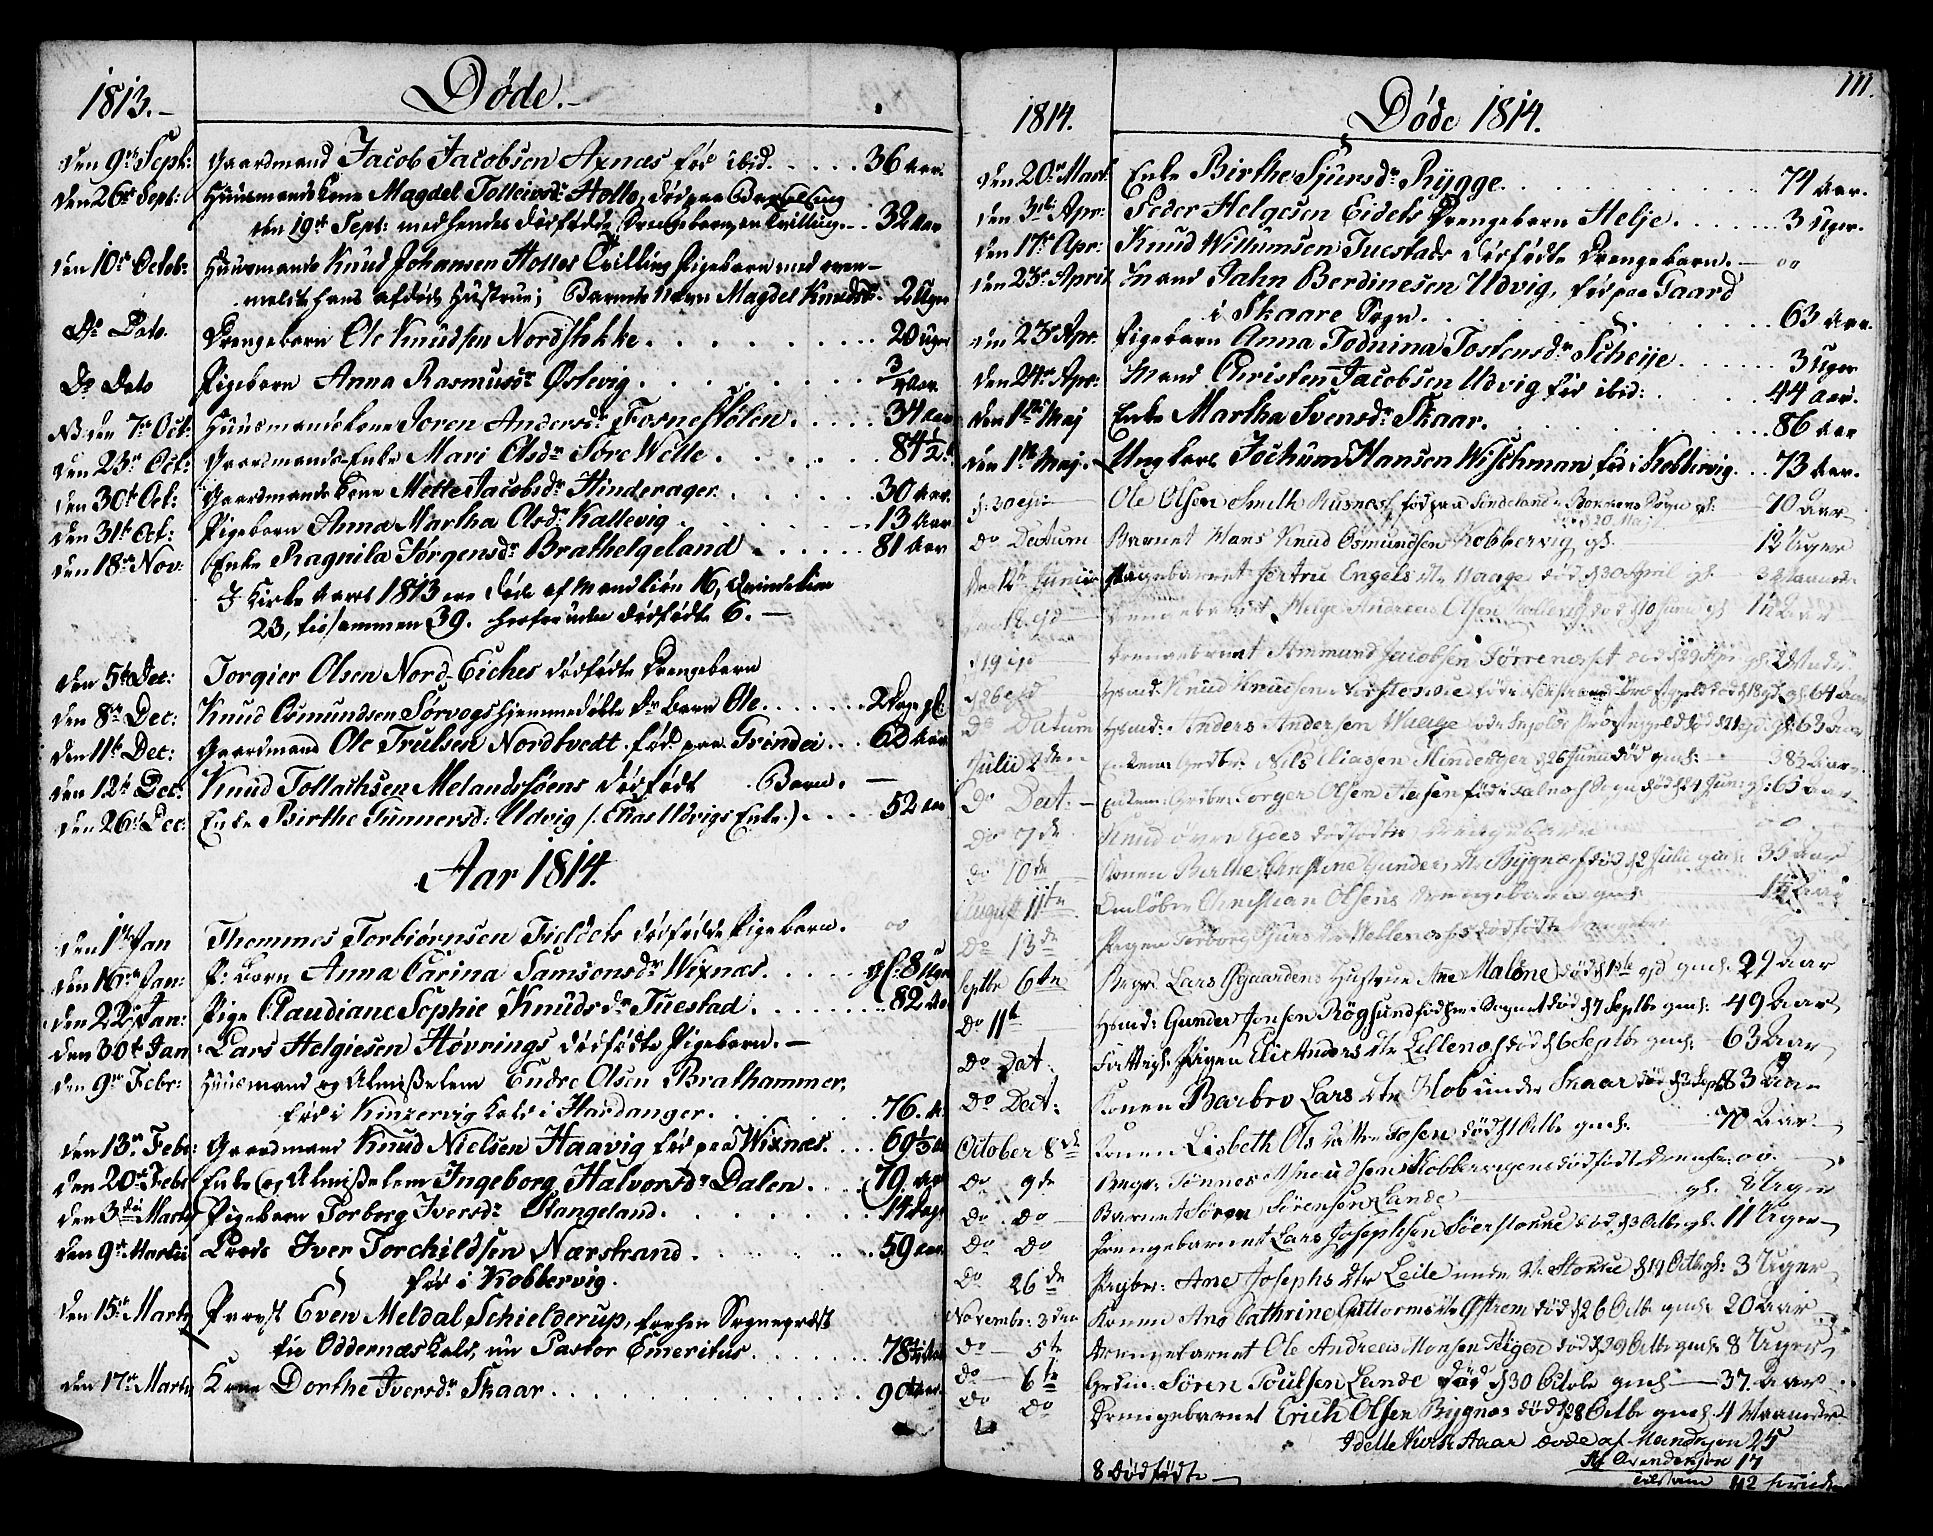 1813.- Døde.-
den 9de Sept: Gaardmand Jacob Jacobsen Axnæs fød ibid. 36 Aar.
den 26de Sept: Huusmands Kone Magdel Tolleivsdr Holle, død paa Barselseng
den 19de Sept: med hendes dødfødde Drengebarn, en Tvilling 32 Aar
den 10de Octob: Huusmands Knud Johansen Holles Tvilling Pigebarn med oven-
meldt hans afdøde Hustrue; Barnets Navn Magdel Knudsdr. 2 Uger
Do Dato. Drengebarn Ole Knudsen Nordstokke 20 Uger
Do Dato Pigebarn Anna Rasmusdr Østevig 3/4 Aar
NB. den 7de Oct: Huusmands Kone Joren Andersdr Fosnestølen 34 Aar
den 23de Oct: Gaardmands Enke Mari Olsdr Søre Welle 84 1/2
den 30te Oct: Gaardmands Kone Mette Jacobsdr Hinderager 30 Aar.
den 31te Oct: Pigebarn Anna Martha Olsdr Kallevig 13 Aar
den 18de Nov: Enke Ragnila Jørgensdr Brathelgeland 81 Aar
I Kirke Aaret 1813 ere døde af Mandkiøn 16, Qvindekiøn
23, tilsammen 39. Herforuden dødfødte 6. -
den 5te Dec: Torgier Olsen Nord-Eiches dødfødte Drengebarn
den 8de Dec: Knud Osmundsen Sørvogs hjemmedøbte Dr barn Ole 2 Dage gl:
den 11te Dec: Gaardmand Ole Trulsen Nordtvedt fød paa Grindei 62 Aar
den 12te Dec: Knud Tollachsen Melandssøens dødfødt Barn. -
den 26de Dec: Enke Birthe Gunnersd: Udvig (: Elias Udvigs Enke.) 52 Aar
Aar 1814.
den 1ste Jan Thommes Torbiørnsen Fieldets dødfødde Pigebarn. oo
den 16de Jan: P: barn Anna Carina Samsonsdr Wixnæs gl. 8 Uger
den 22de Jan: Pige Claudiane Sophie Knudsdr Tuestad 82
den 30te Jan: Lars Helgiesen Høvrings dødfødte Pigebarn. -
den 9de Febr: Huusmand og Almisselem Endre Olsen Brathammer.
fød i Kinzervig Kald i Hardanger. 76. A:
den 13de Febr: Gaardmand Knud Nielsen Haavig fød paa Wixnæs. 69 1/2
den 20de Febr Enke og Almisselem Ingeborg Halvorsdr Dalen 79 Aar
den 3die Marts Pigebarn Torborg Iversdr Stangeland 14 Dage
den 9de Martii Lods Iver Torchildsen Nærstrand 59 Aar.
fød i Kobbervig.
den 15de Marts Provst Even Meldal Schielderup, forhen Sognepræst
til Oddernæs Kald, nu Pastor Emeritus 78 1/2
den 17de Marts Kone Dorthe Iversdr Skaar 90 Aar.
111.
1814. Døde 1814.
den 20de Mart. Enke Birthe Sjursdr Rygge 74 Aar.
den 3die Apr: Peder Helgesen Eidets Drengebarn Helje 3 Uger.
den 17de Apr: Knud Willumsen Tuestads dødfødte Drengebarn. - oo
den 23de April Mand Jahn Berdinesen Udvig, fød paa Gaard
i Skaare Sogn 63 Aar.
den 23de Apr: Pigebarn Anna Todnina Tostensdr Scheije 3 Uger
den 24de Apr: Mand Christen Jacobsen Udvig fød ibid: 44 Aar.
den 1ste Maj Enke Martha Svensdr Skaar. 86 Aar
den 1ste Maj. Ungkarl Jochum Hansen Wischman fød i Kobbervig 73 Aar.
d: 30 ejs: Ole Olsen Smith Rusnæs, fød paa Sindeland Sogn gl: 70 Aar
død 20 Maj
Do Datum Barnet Hans Knud Osmundsen Kobbervig gl. 12 Uger
Den 12te Junii Pigebarnet Jertru Engels dtr Waage død d 30 April gl. 3 Maaned:
18 ejsd Drengebarnet Helge Andreas Olsen død d 10 Juni gl 1 1/2 Aar
d 19 ejsd Drengebarnet Ammund Jacobsen Tørrenæsset død d 29
d 26 ejsd Hsmd: Knud Knudsen fød i Præstegjeld død d 18 gl. 64 Aar
Do Datum Hsmd: Anders Andersen Waage Præstegjeld død d 21 gl 63 Aar
Julii 2den Enkem: Grdbr: Nils Eliasen Hinderager d 26 Junii død gml: 38 1/2 Aar
Do Dat: Enkem: Grdbr: Torger Olsen fød i Sogn død d 24 Juni gl: 63 Aar
Do 9de Knud dødfødte Drengebarn oo
Do 10de Konen Berthe Christine Gunders dtr Bygnæs død d 2 Julii gml: 35 Aar
August 11te Christian Olsens Drengebarn gml: 1 1/2 Aar
Do 13de Pigen Torborg Sjurs dtr dødfødte
Septbr 6te Begr: Lars Ifgaardens Hustrue Ane Malene død d 1ste ejsd gml. 29 Aar
Do 11te Hsmd: Gunder Jonsen Røgsund fød her i Sognet død d 7 Septbr gml. 49 Aar
Do Dat: Fattige Pigen Elie Anders dtr Lillenæs død d 6 Septbr gml: 63 Aar
Do Dat: Konen Barbro Lars dtr Blob under Skaar død d 2 Sept 83 Aar
October 8de Konen Lisbeth Ols datter Fosen død d 1 Octbr gml: 70 Aar.
Do 9de Begr: Tønnes Amundsen Kobbervigens dødfødte Drenbr: oo
Do Do Barnet Søren Sørensen Lande gl. 8 Uger
Do Do Drengebarnet Lars Josephsen død d 3 Octbr gl. 11 Uger
Do 26de Pigebr: Ane Josephs dtr Leite under d 19 Octbr gl: 3 Uger
Novembr: 3die Konen Ane Cathrine Guttorms dtr Østrem død d 26 Octbr gml: 20 Aar
Do - 5te Drengebarnet Ole Andreas Monsen død d 29 Octbr gml: 8 Uger
Do - 6te Grdm: Søren Poulsen Lande død d 30 Octobr gml: 37. Aar
Do Do Drengebarnet Erich Olsen Bygnæs død d 28 Octbr gml: 4 Maaneder
I dette Kirke Aaar døde af Mandkjøn 25
Af Qvindekjøn 17
8 dødfødte - tilsam 42